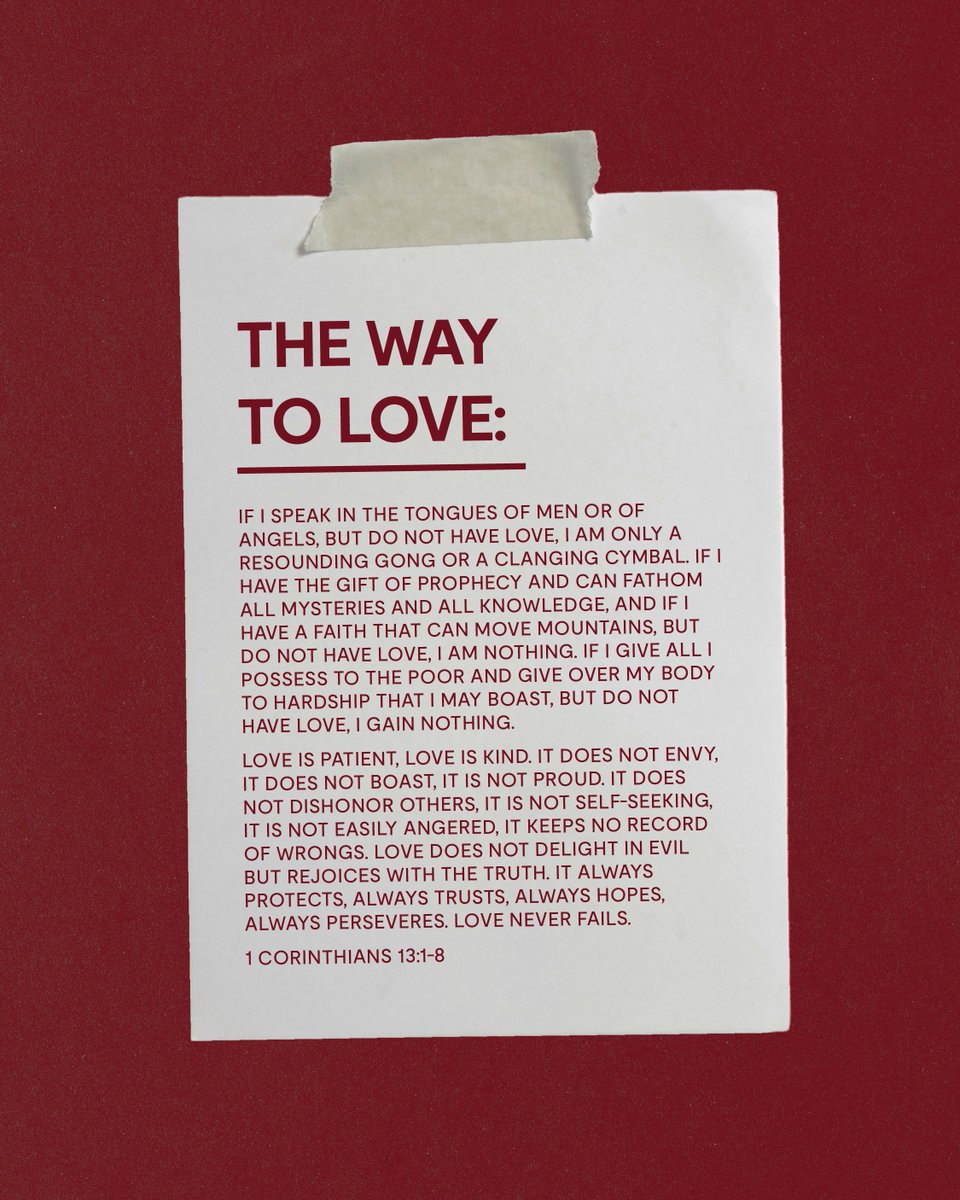 THE WAY
TO LOVE:
IF I SPEAK IN THE TONGUES OF MEN OR OF
ANGELS, BUT DO NOT HAVE LOVE, I AM ONLY A
RESOUNDING GONG OR A CLANGING CYMBAL. IF I
HAVE THE GIFT OF PROPHECY AND CAN FATHOM
ALL MYSTERIES AND ALL KNOWLEDGE, AND IF I
HAVE A FAITH THAT CAN MOVE MOUNTAINS, BUT
DO NOT HAVE LOVE, I AM NOTHING. IF I GIVE ALL I
POSSESS TO THE POOR AND GIVE OVER MY BODY
TO HARDSHIP THAT I MAY BOAST, BUT DO NOT
HAVE LOVE, I GAIN NOTHING.
LOVE IS PATIENT, LOVE IS KIND. IT DOES NOT ENVY,
IT DOES NOT BOAST, IT IS NOT PROUD. IT DOES
NOT DISHONOR OTHERS, IT IS NOT SELF-SEEKING,
IT IS NOT EASILY ANGERED, IT KEEPS NO RECORD
OF WRONGS. LOVE DOES NOT DELIGHT IN EVIL
BUT REJOICES WITH THE TRUTH. IT ALWAYS
PROTECTS, ALWAYS TRUSTS, ALWAYS HOPES,
ALWAYS PERSEVERES. LOVE NEVER FAILS.
1 CORINTHIANS 13:1-8